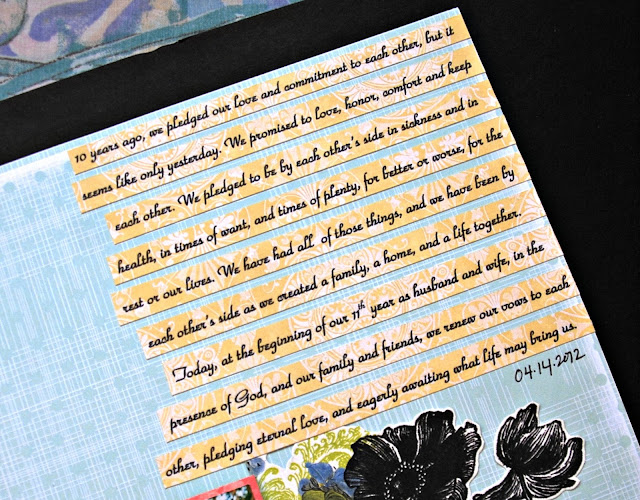 10 years ago, we pledged our love and commitment to each other, but it
seems like only yesterday. We promised to love, honor, comfort and keep
each other. We pledged to be by each other's side in sickness and in
health, in times of want, and times of plenty, for better or worse, for the
rest or our lives. We have had all of those things, and we have been by
each other's side as we created a family, a home, and a life together.
Today, at the beginning of our 11th year as husband and wife, in the
presence of God, and our family and friends, we renew our vows to each
other, pledging eternal love, and eagerly awaiting what life may bring us.
04.14.2012